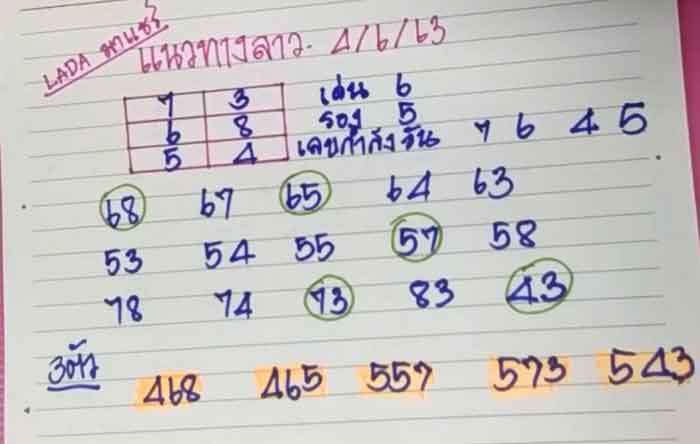 LADA มาแชร์
แนวทางลาว. 4/6/63
7 3 เด่น 6
6 8 รอง 5
5 4 เลขกำลังวัน 7 6 4 5
68 67 65 64 63
53 54 55 57 58
78 74 73 83 43
3ตัว
468 465 557 573 543